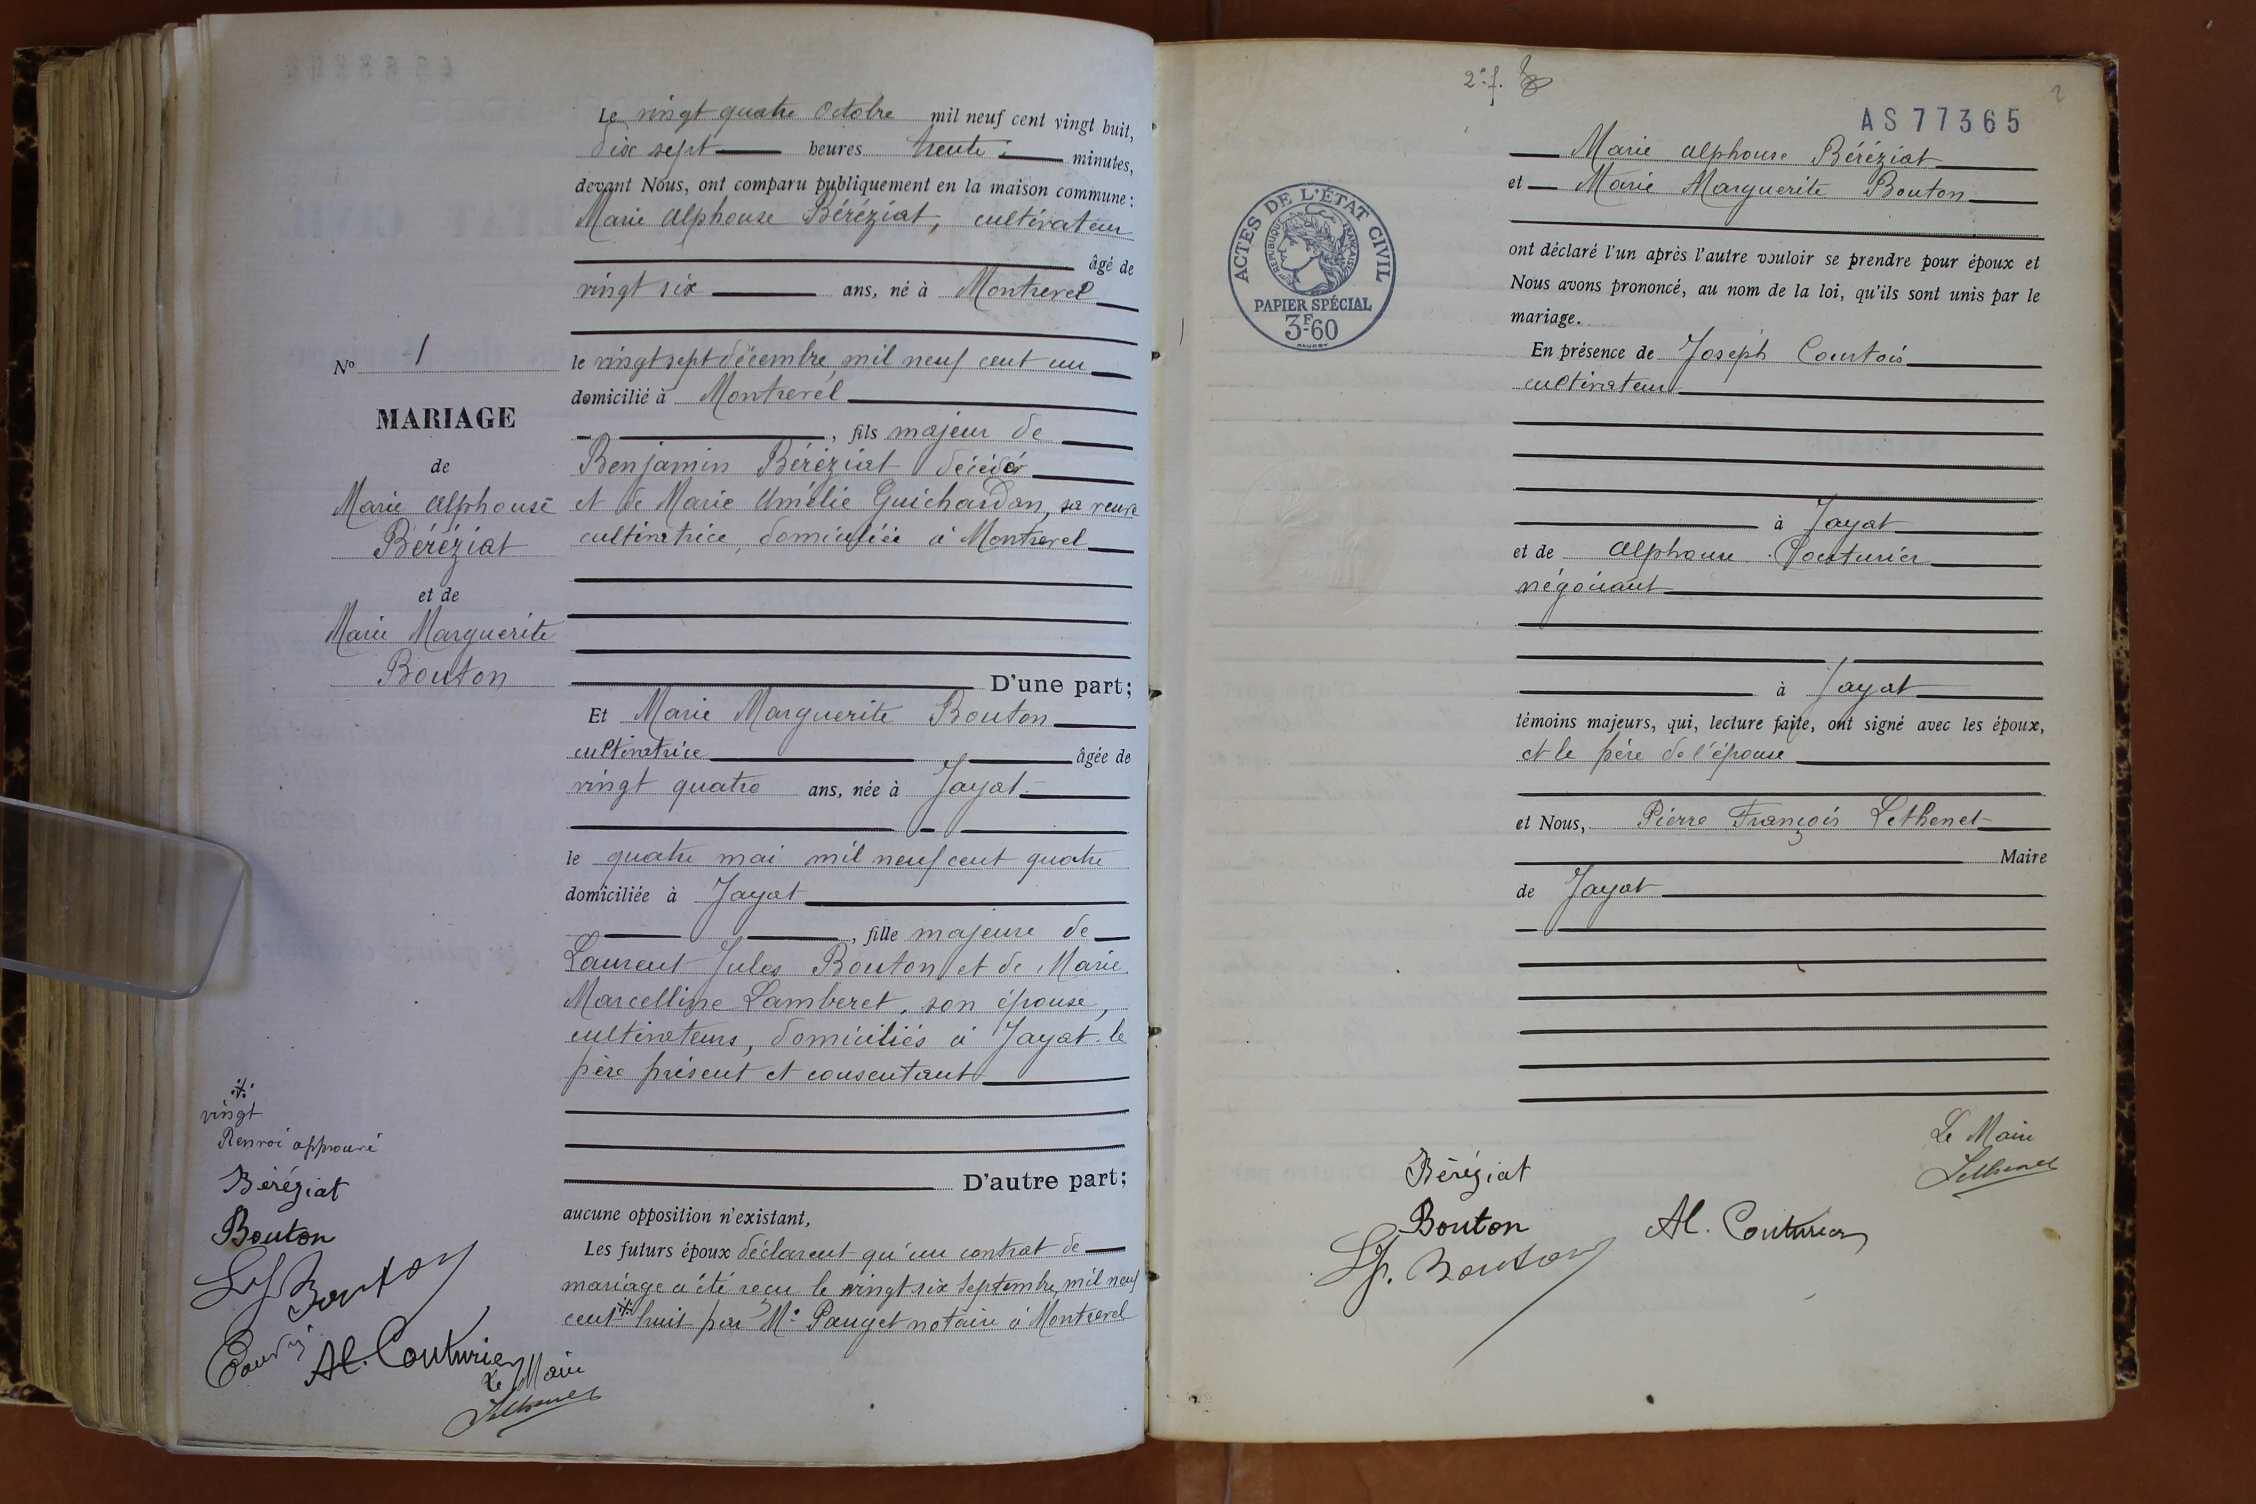 Le vingt quatre Octobre mil neuf cent vingt huit,
dix sept heures trente minutes,
devant Nous, ont comparu publiquement en la maison commune :
Marie Alphonse Béréziat, cultivateur
âgé de
vingt six ans, né à Montrevel
le vingt sept décembre mil neuf cent un
domicilié à Montrevel
, fils majeur de
Benjamin Béréziat décédé
et de Marie Amélie Guichardon, sa veuve
cultivatrice, domiciliée à Montrevel
D'une part ;
Et Marie Marguerite Bouton
cultivatrice âgée de
vingt quatre ans, née à Jayat
le quatre mai mil neuf cent quatre
domiciliée à Jayat
, fille majeure de
Laurent Jules Bouton et de Marie
Marcelline Lamberet, son épouse,
cultivateurs, domiciliés à Jayat. le
père présent et consentant
D'autre part ;
aucune opposition n'existant,
Les futurs époux déclarent qu'un contrat de
mariage a été reçu le vingt six septembre mil neuf
cent huit par Me Pauget notaire à Montrevel
No 1
MARIAGE
de
Marie Alphonse
Béréziat
et de
Marie Marguerite
Bouton
vingt
Renvoi approuvé
Béréziat
Bouton
LJ Bouton
Al. Couturier
Le Maire
Lethenet
2e f.
2
AS77365
ACTES DE L'ÉTAT CIVIL
REPUBLIQUE FRANÇAISE
PAPIER SPÉCIAL
3F60
Marie Alphonse Béréziat
et Marie Marguerite Bouton
ont déclaré l'un après l'autre vouloir se prendre pour époux et
Nous avons prononcé, au nom de la loi, qu'ils sont unis par le
mariage.
En présence de Joseph Courtois
cultivateur
à Jayat
et de Alphonse Couturier
négociant
à Jayat
témoins majeurs, qui, lecture faite, ont signé avec les époux,
et le père de l'épouse
et Nous, Pierre François Lethenet
Maire
de Jayat
Le Maire
Lethenet
Béréziat
Bouton
Al. Couturier
LJ. Bouton